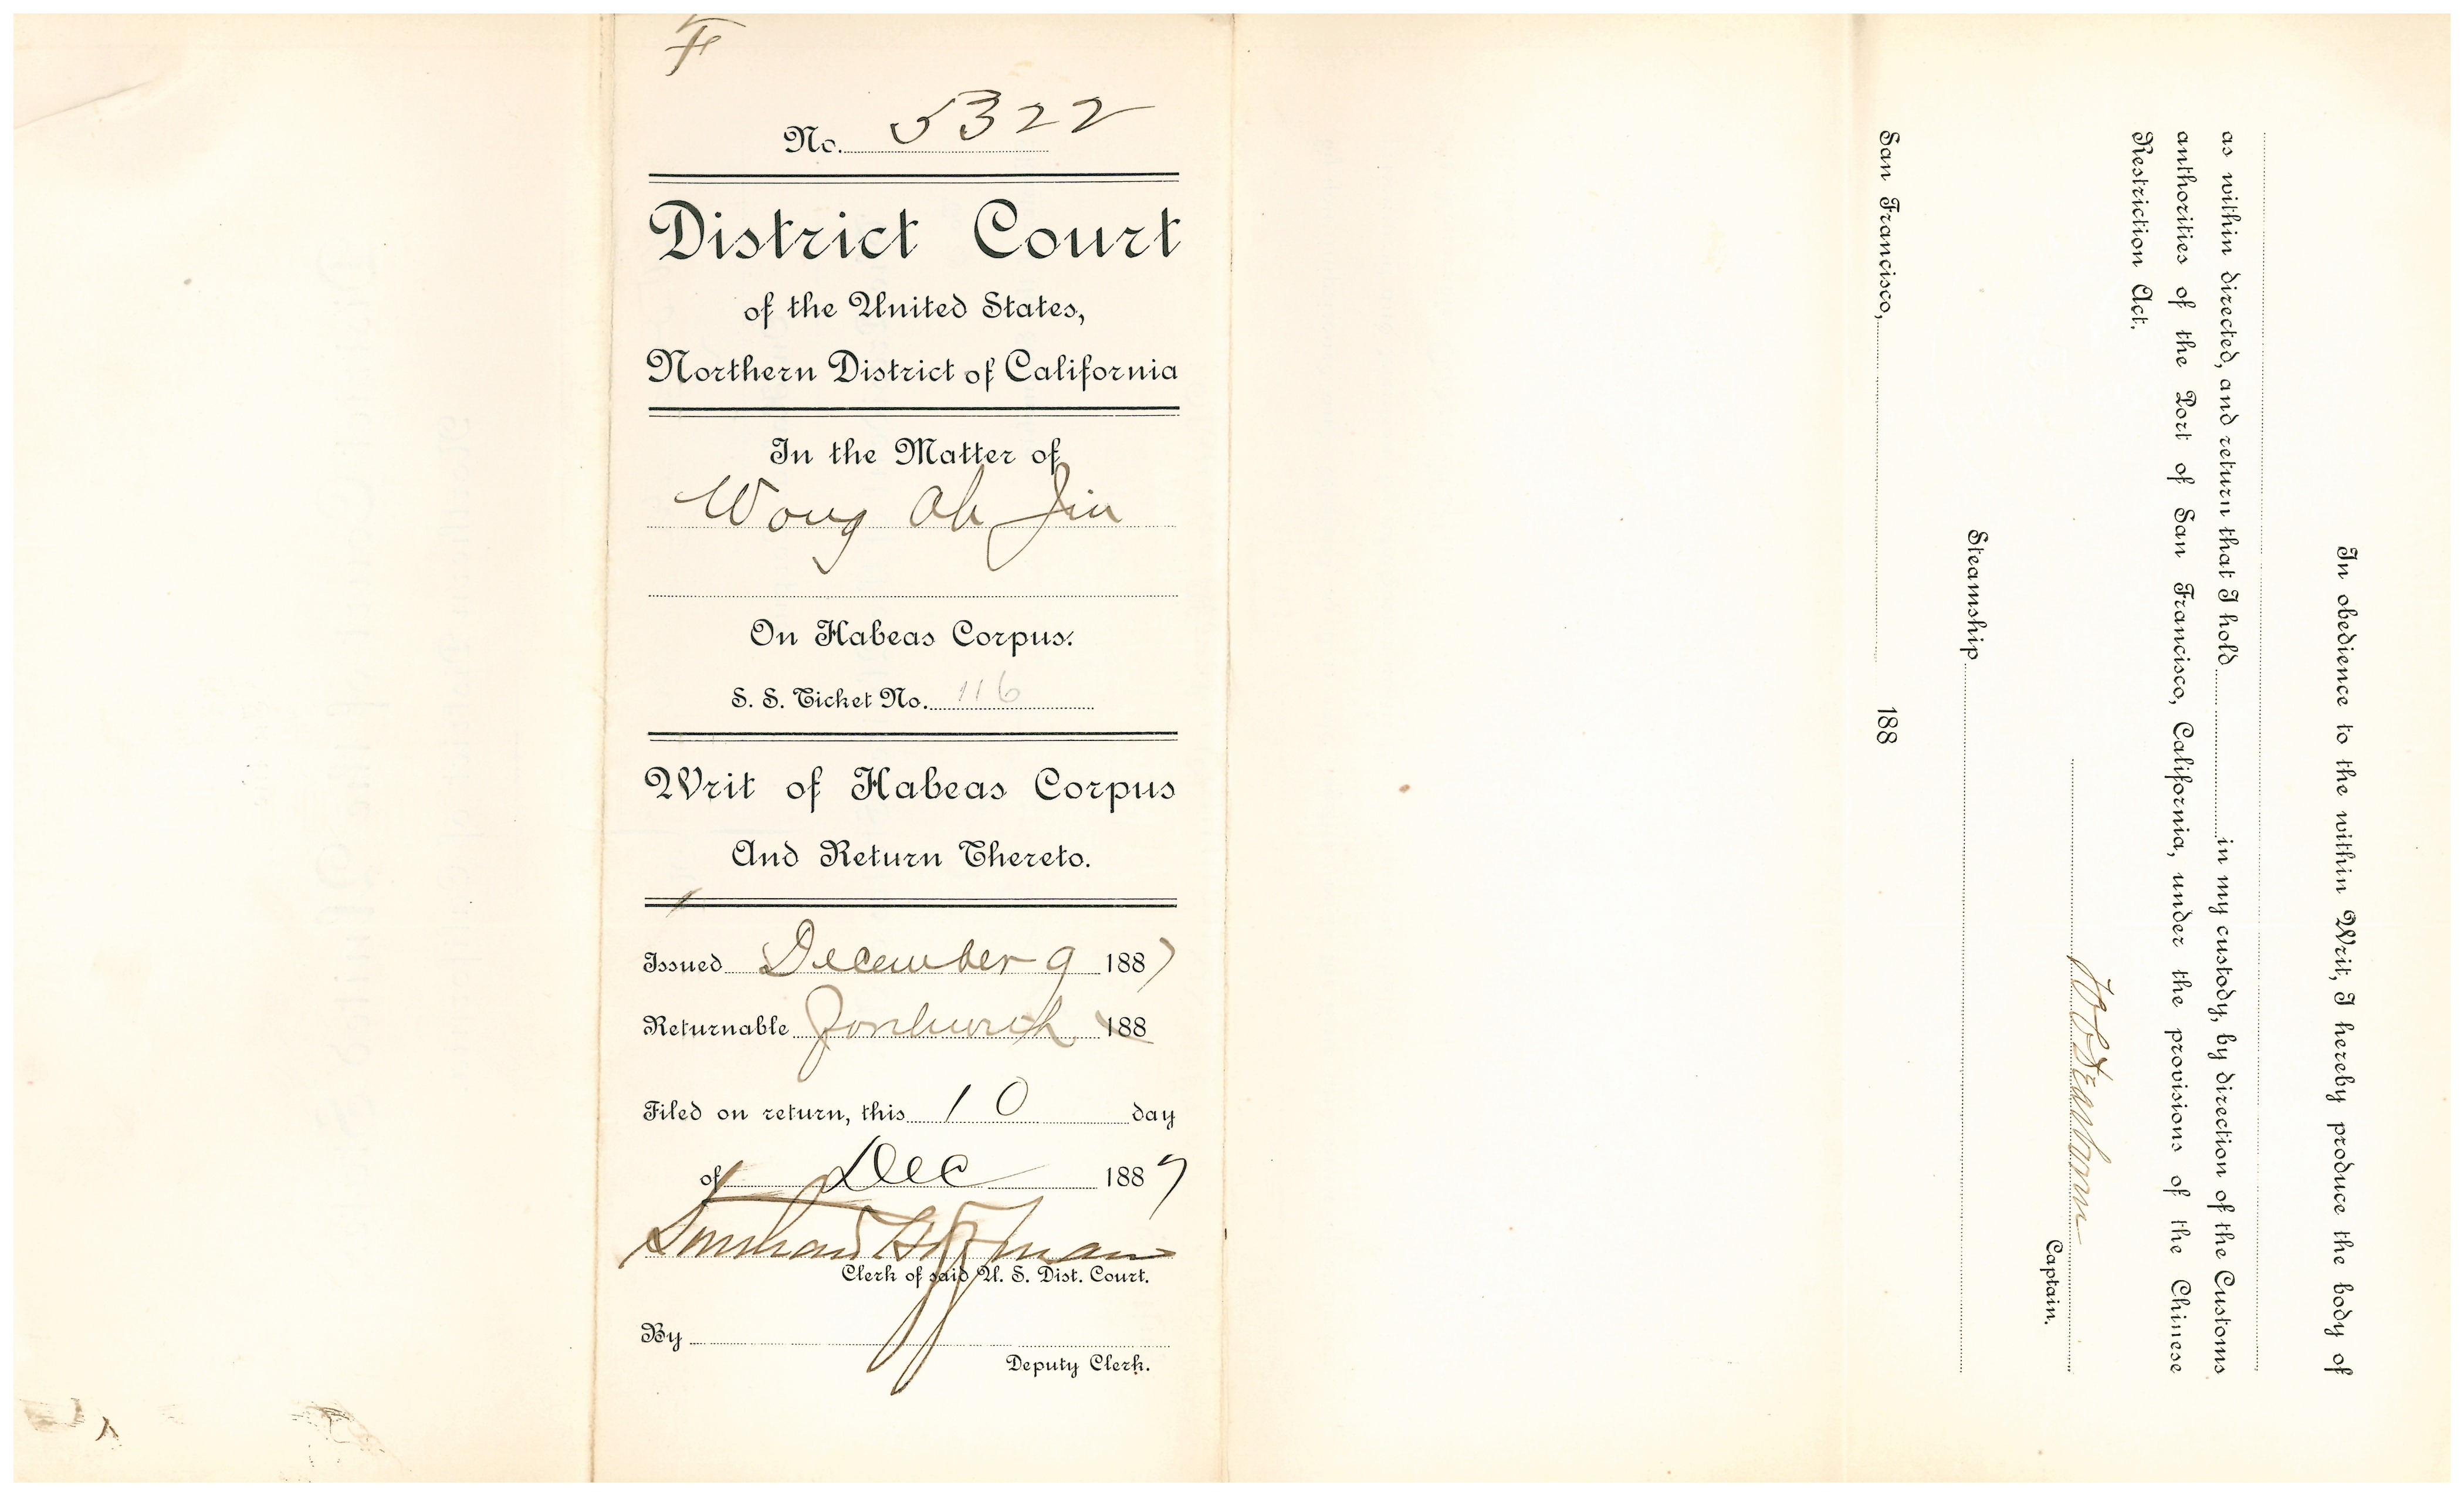 F
No. 5322
District Court
of the United States,
Northern District of California
In the Matter of
Wong Ah Jin
On Habeas Corpus.
S. S. Ticket No. 116
Writ of Habeas Corpus
And Return Thereto.
Issued December 9 1887
Returnable Forthwith 188
Filed on return, this 10 day
of Dec 1887
Southard Hoffman
Clerk of said U. S. Dist. Court.
By
Deputy Clerk.
In obedience to the within Writ, I hereby produce the body of
as within directed, and return that I hold in my custody, by direction of the Customs
authorities of the Port of San Francisco, California, under the provisions of the Chinese
Restriction Act.
Captain.
Steamship
San Francisco, 188